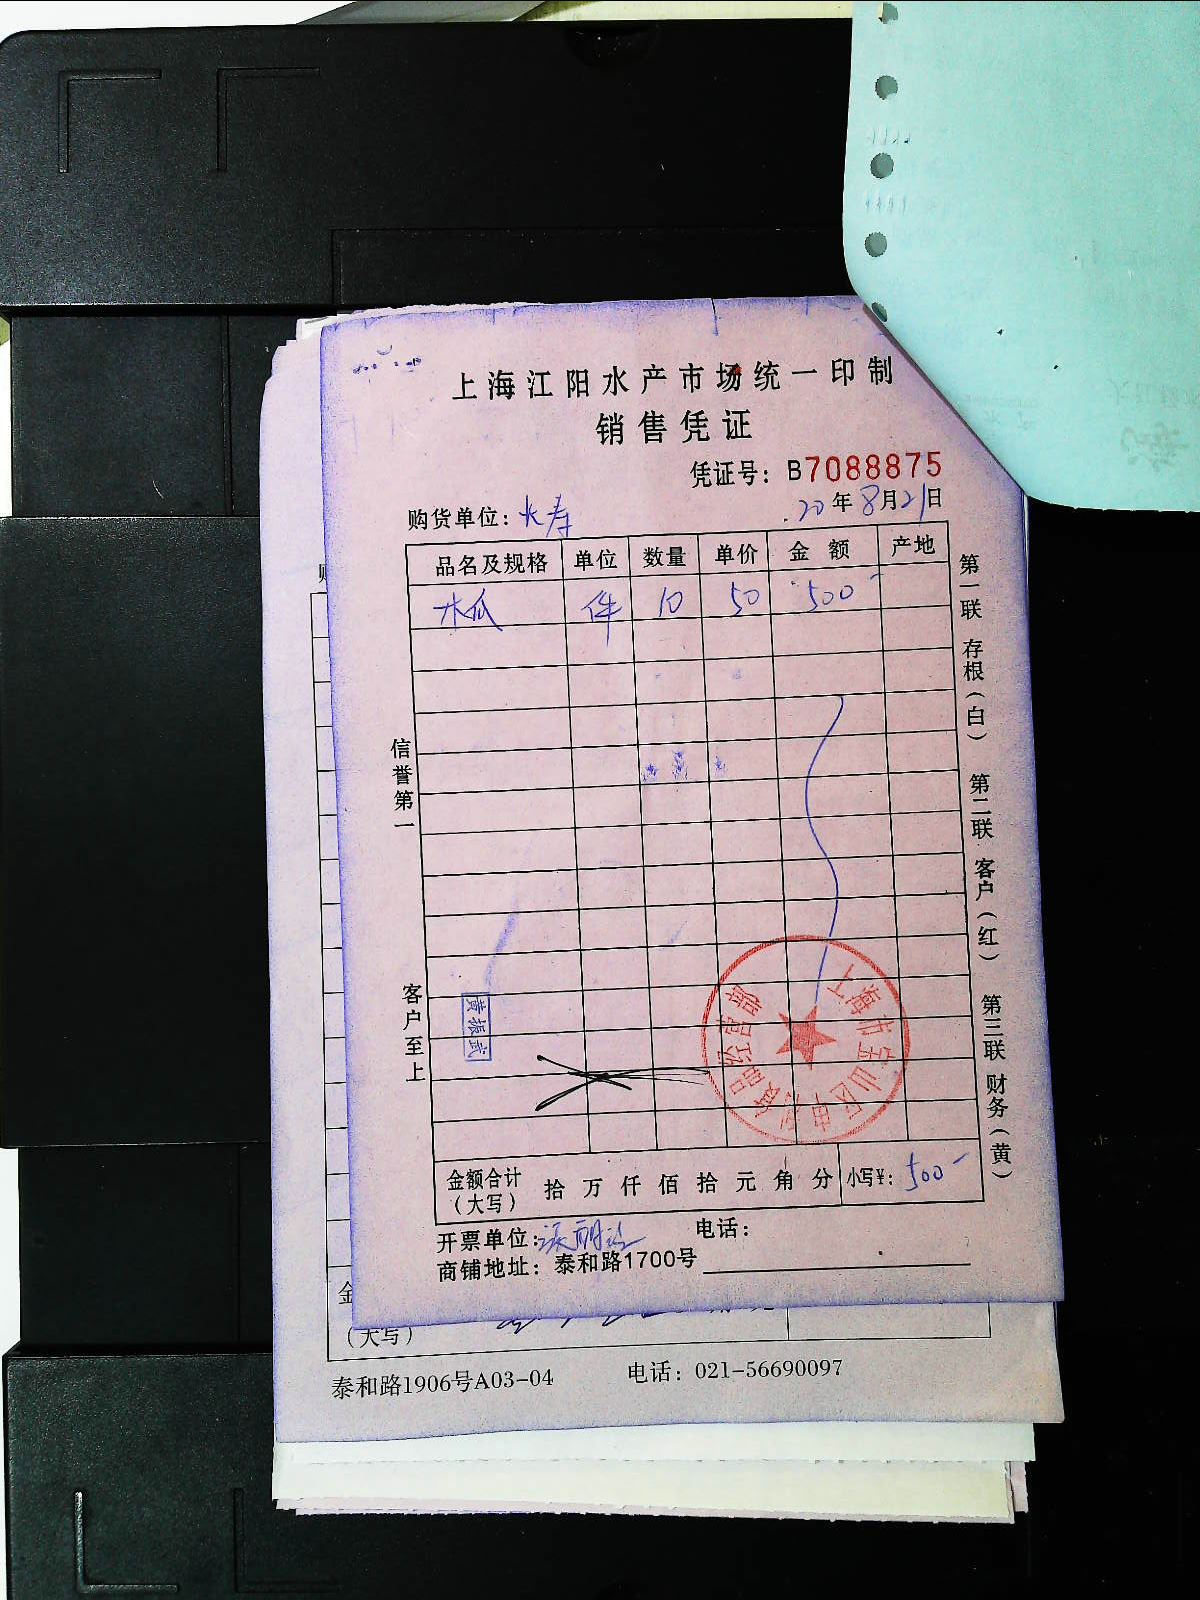 上海江阳水产市场统一印制
销售凭证
凭证号：B7088875
购货单位：长寿 20年8月21日
品名及规格 单位 数量 单价 金额 产地
木瓜 件 10 50 500-
信誉第一
客户至上
第一联 存根（白） 第二联 客户（红） 第三联 财务（黄）
黄振武
上海市宝山区
经营部
金额合计（大写） 拾 万 仟 佰 拾 元 角 分 小写¥：500-
开票单位： 电话：
商铺地址：泰和路1700号
（大写）
泰和路1906号A03-04 电话：021-56690097